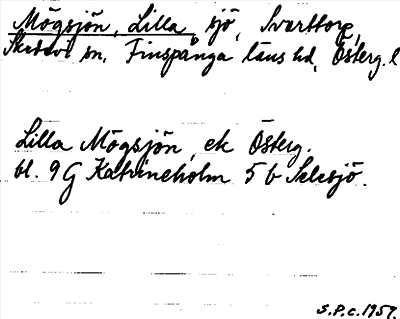 Mögsjön, Lilla, sjö, Svarttorp,
Skedevi sn, Finspånga läns hd, Österg. l
Lilla Mögsjön, ek Österg.
bl. 9 G Katrineholm 5 b
S.P.C. 1957.